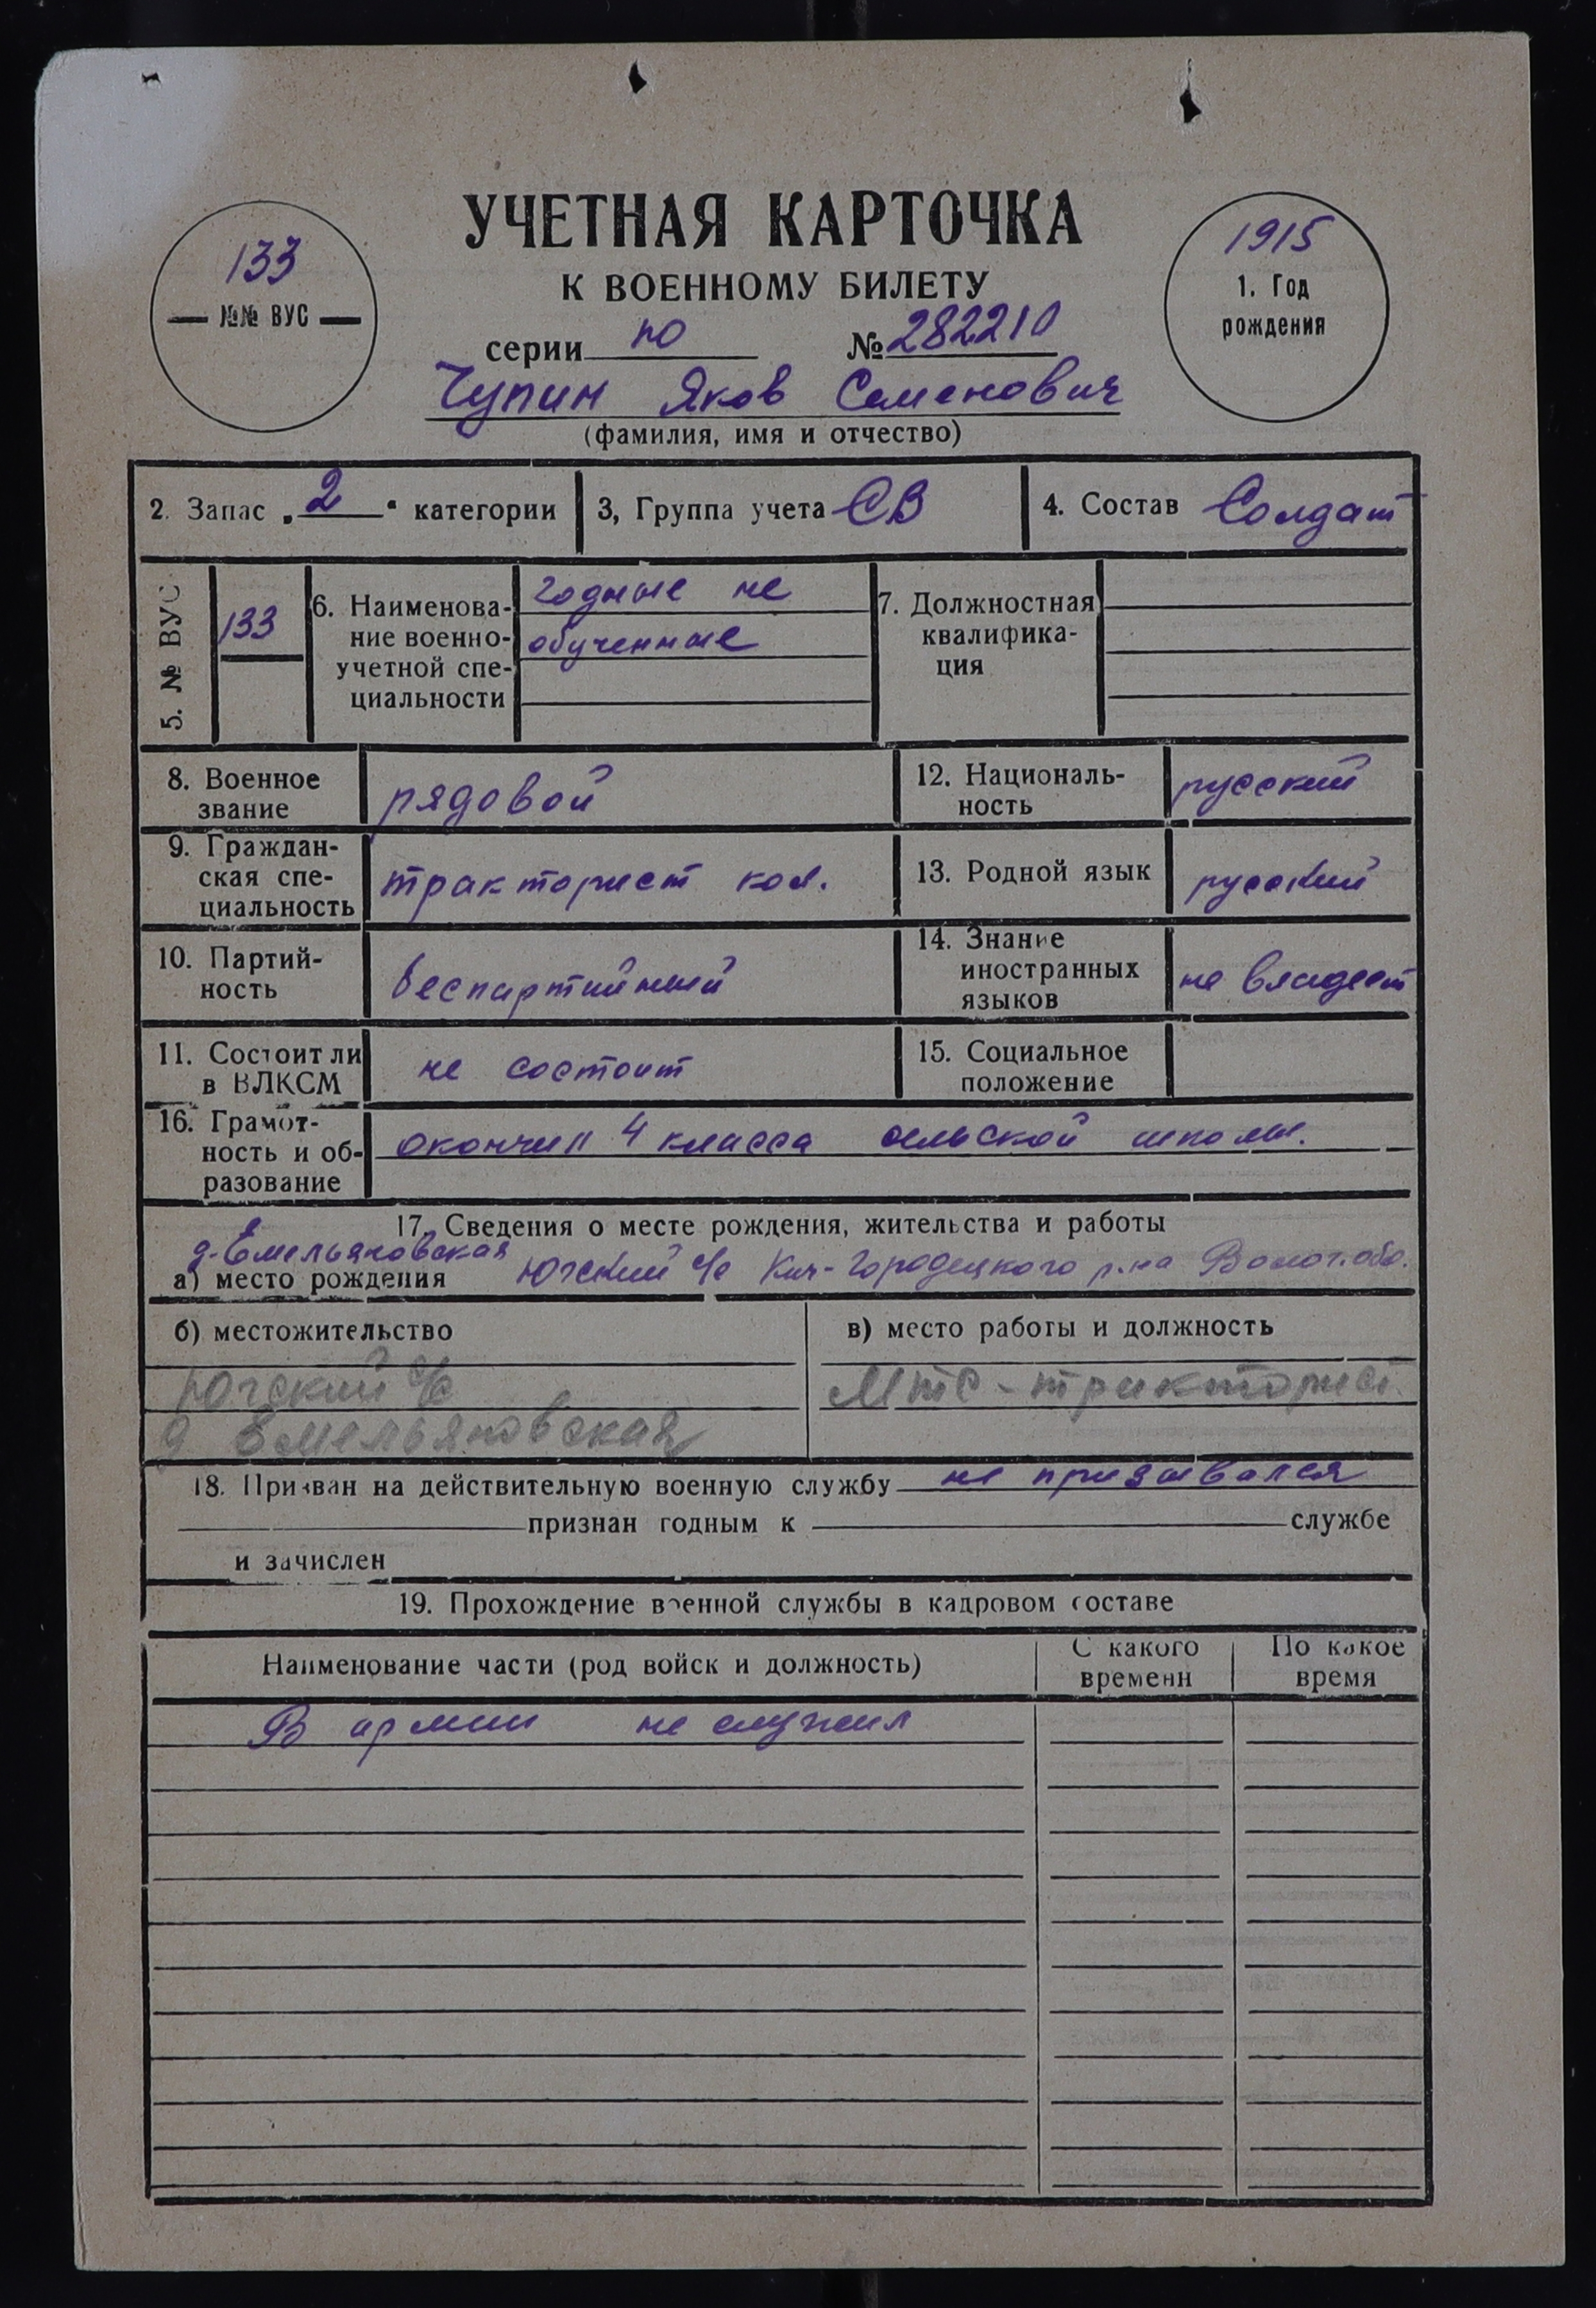 УЧЕТНАЯ КАРТОЧКА
К ВОЕННОМУ БИЛЕТУ
133
№№ ВУС
1915
1. Год
рождения
серии по № 282210
Чупин Яков Семенович
(фамилия, имя и отчество)
2. Запас „2“ категории
3, Группа учета СВ
4. Состав Солдат
5. № ВУС
133
6. Наименова-
ние военно-
учетной спе-
циальности
годные не
обученные
7. Должностная
квалифика-
ция
8. Военное
звание
рядовой
12. Националь-
ность
русский
9. Граждан-
ская спе-
циальность
тракторист кол.
13. Родной язык
русский
10. Партий-
ность
беспартийный
14. Знание
иностранных
языков
не владеет
11. Состоит ли
в ВЛКСМ
не состоит
15. Социальное
положение
16. Грамот-
ность и об-
разование
окончил 4 класса сельской школы.
17. Сведения о месте рождения, жительства и работы
д. Емельяновская
а) место рождения Югский с/с Кич-Городецкого р-на Волог. обл.
б) местожительство
Югский с/с
д Емельяновская
в) место работы и должность
МТС - тракторист
18. Призван на действительную военную службу не призывался
признан годным к службе
и зачислен
19. Прохождение военной службы в кадровом составе
Наименование части (род войск и должность)
С какого
времени
По какое
время
В армии не служил